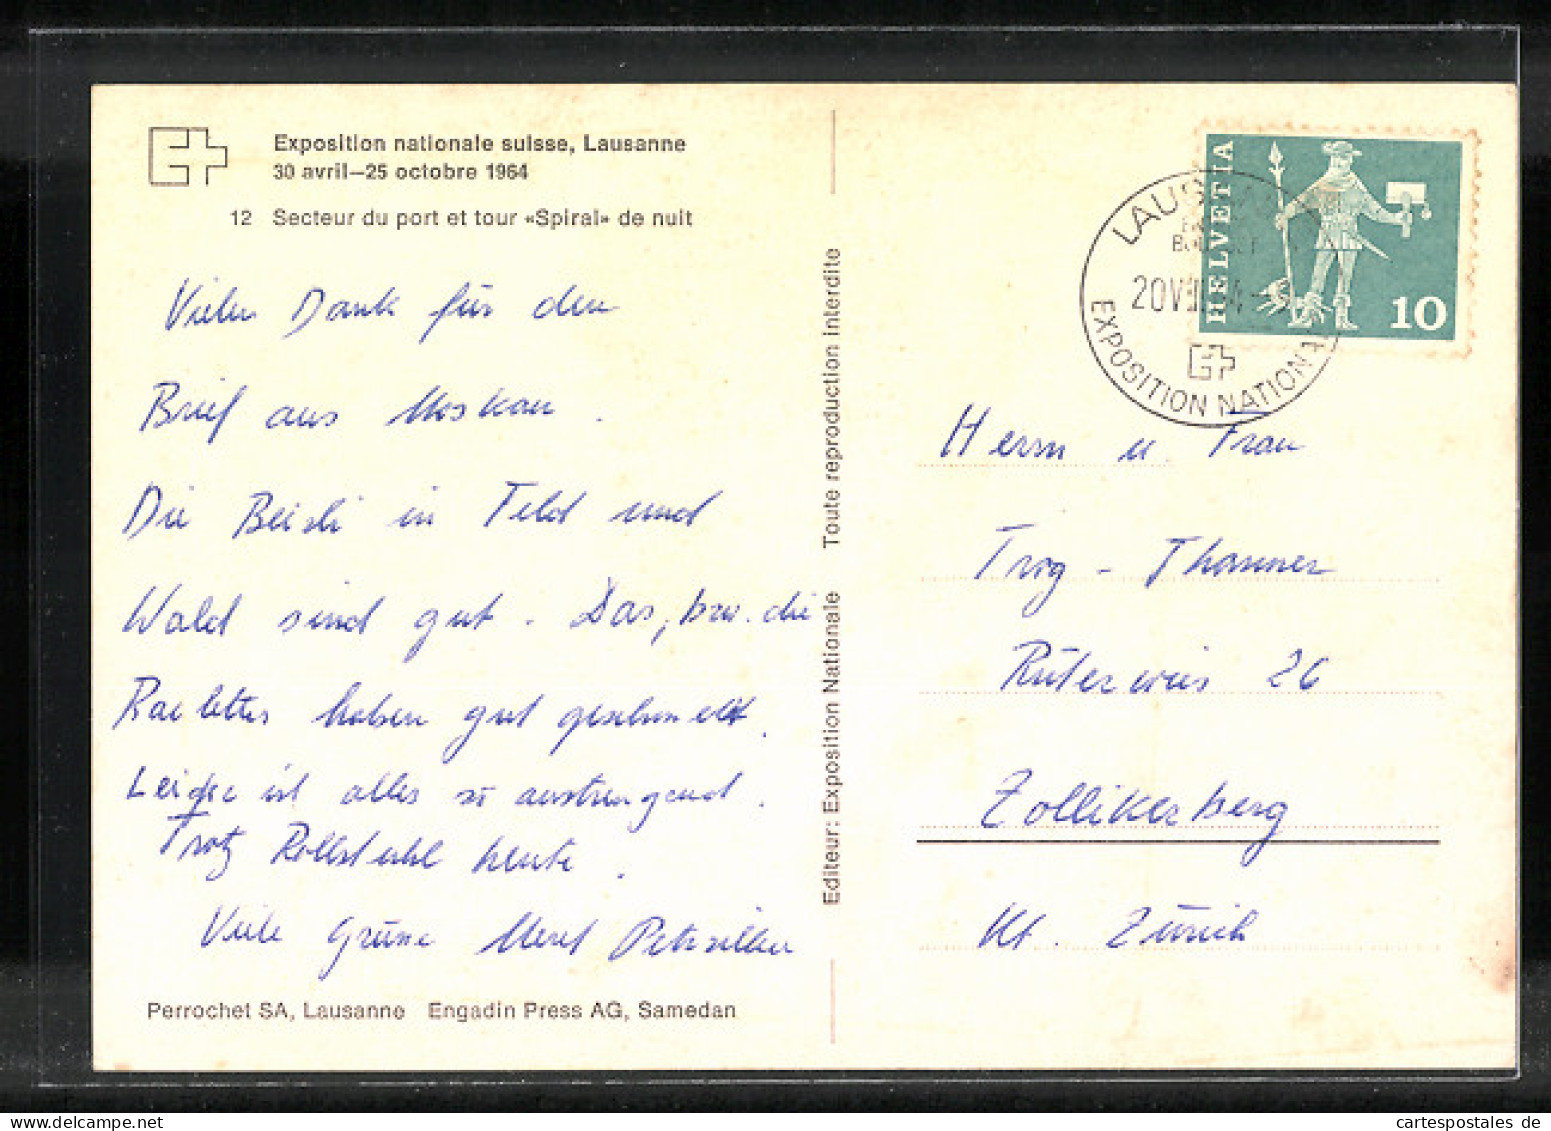 Exposition nationale suisse, Lausanne
30 avril–25 octobre 1964
12 Secteur du port et tour «Spiral» de nuit
Vielen Dank für den
Brief aus Moskau.
Die Beizli in Feld und
Wald sind gut. Das, bzw. die
Raclettes haben gut geschmeckt.
Leider ist alles so anstrengend.
Trotz Rollstuhl heute.
Viele Grüsse
Perrochet SA, Lausanne Engadin Press AG, Samedan
Editeur: Exposition Nationale Toute reproduction interdite
HELVETIA
10
LAUS
20 V
EXPOSITION NATIONA
Herrn u. Frau
Trog - Thanner
26
Zollikerberg
Kt. Zürich
cartespostales de